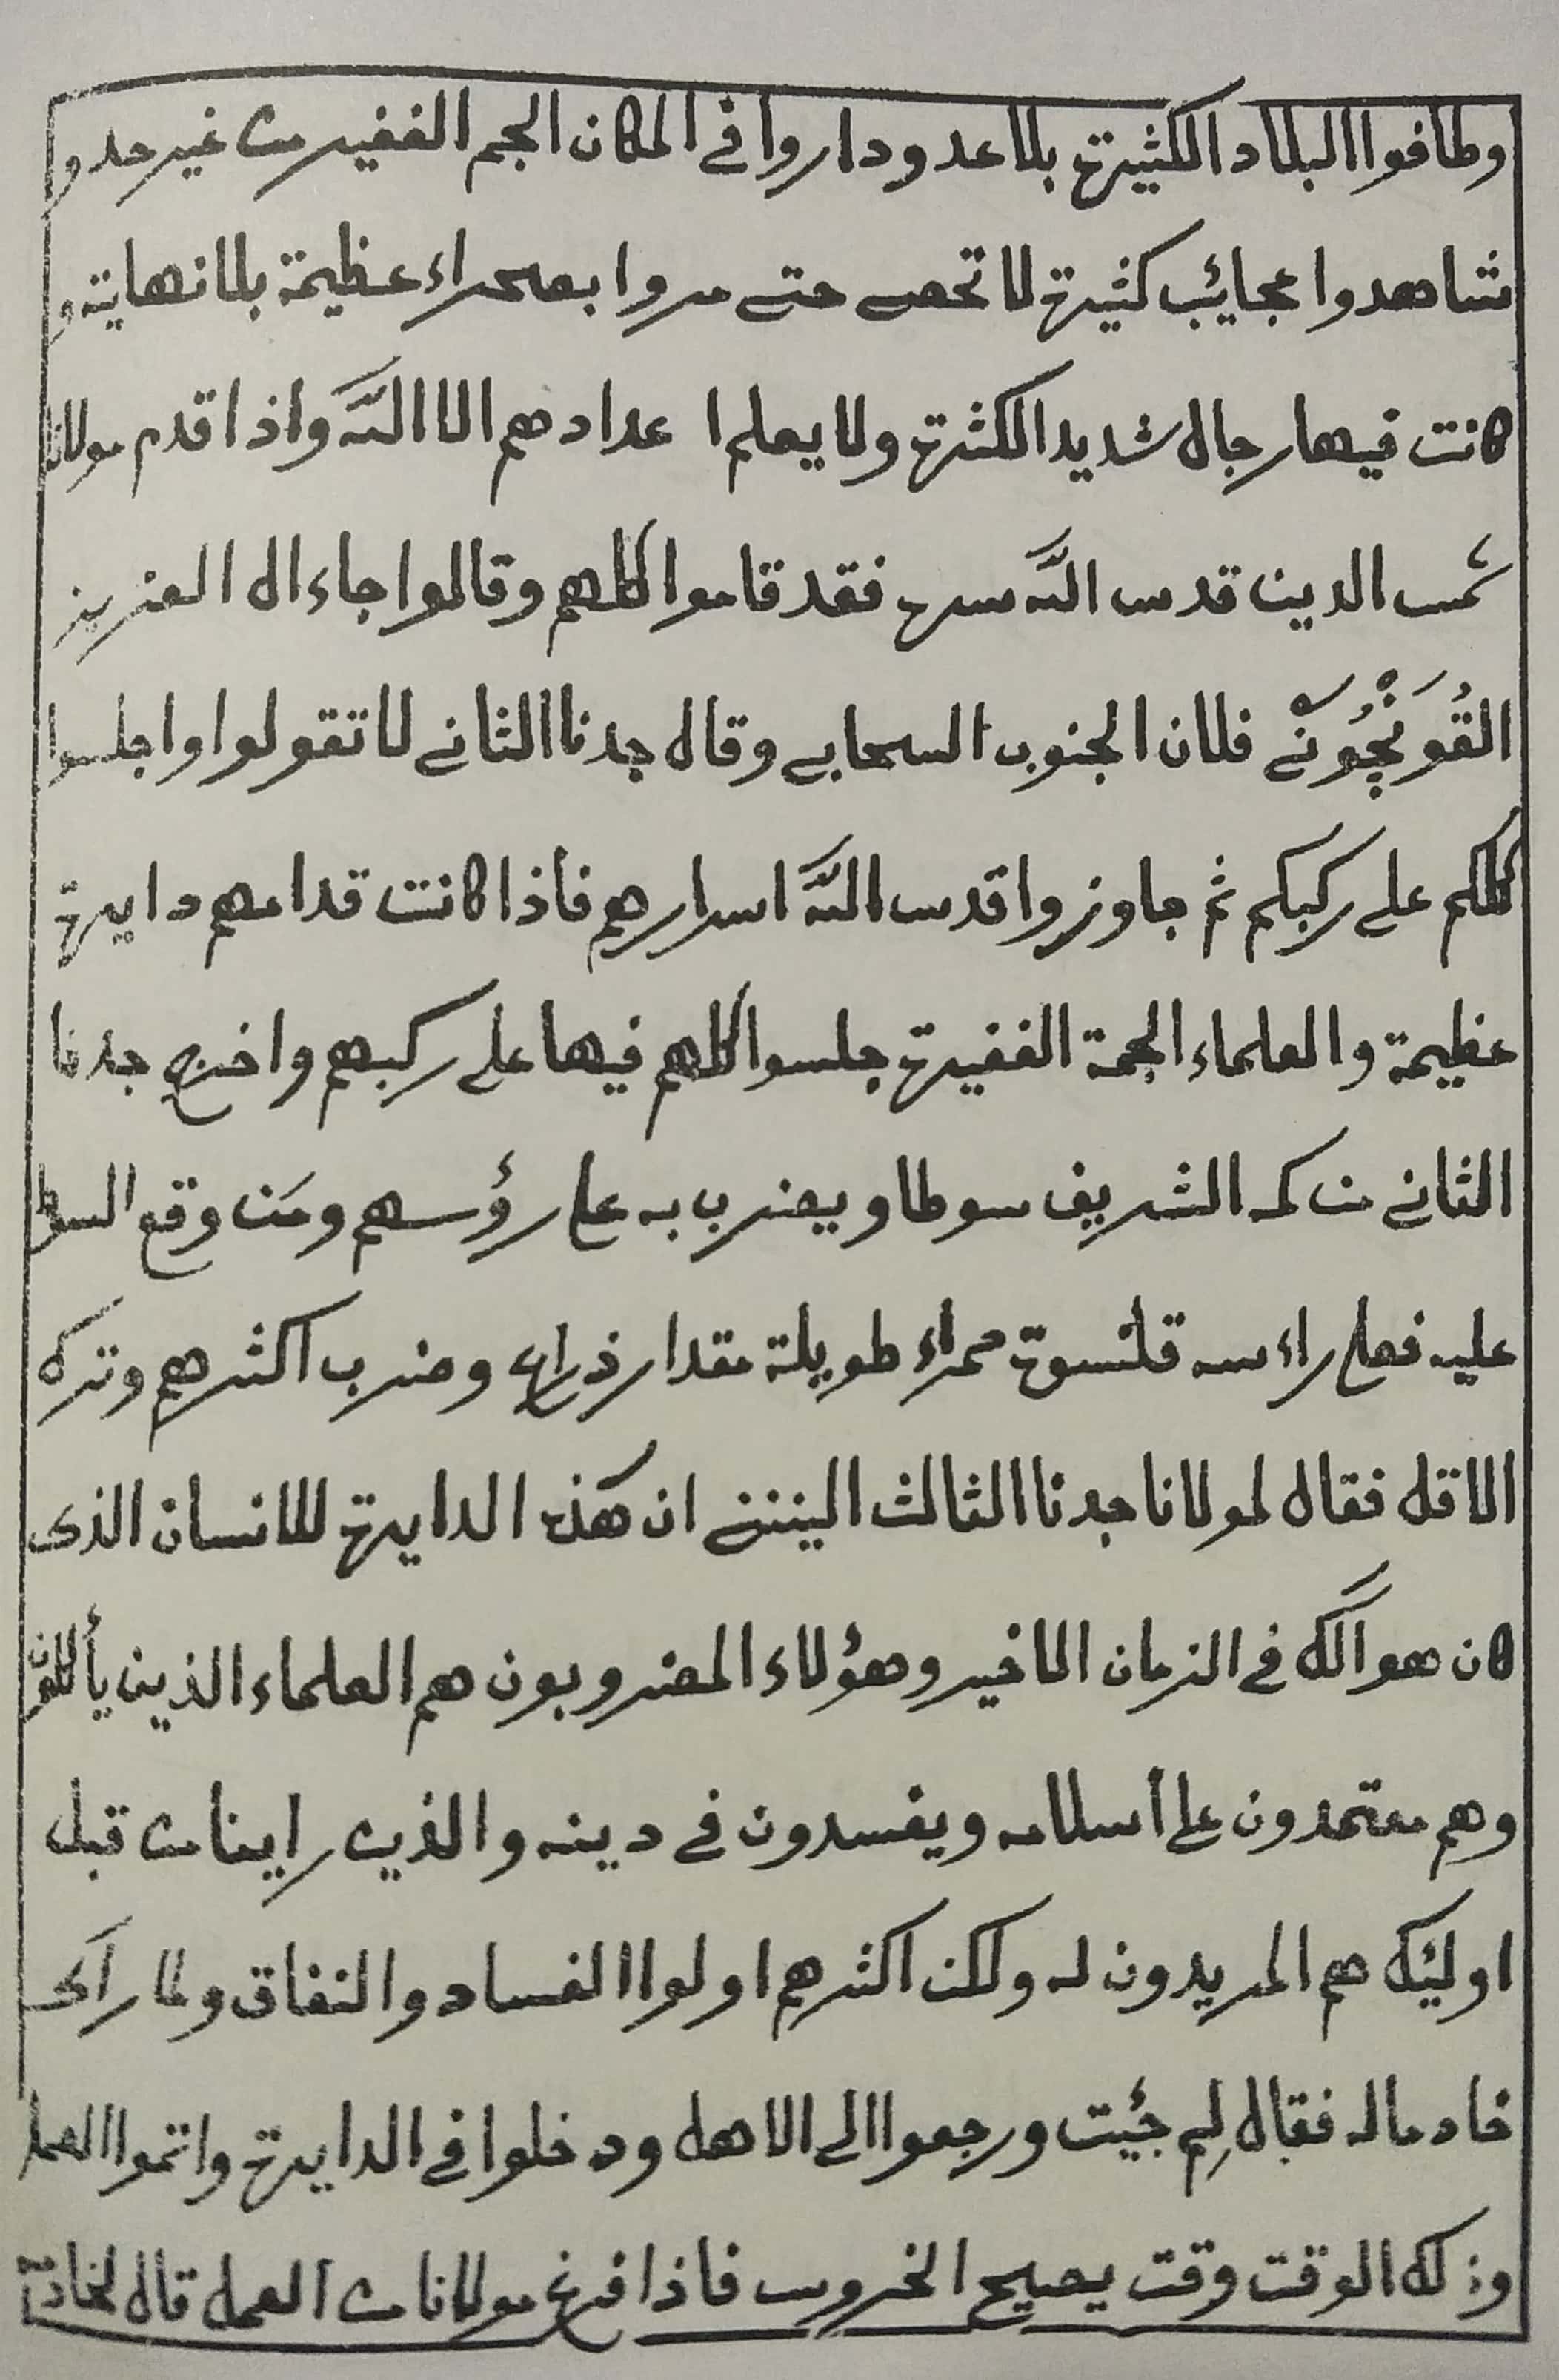 وطافوا البلاد الكثيرة بلا عد وداروا في المكان الجم الغفير من غير حد و
شاهدوا عجائب كثيرة لا تحصى حتى مروا بصحراء عظيمة بلا نهاية و
كانت فيها رجال شديد الكثرة ولا يعلم اعدادهم الا اللّٰه واذا قدم مولانا
شمس الدين قدس اللّٰه سره فقد قاموا كلهم وقالوا جاء ال العزيز
القُوَنْچُونْے فلان الجنوب السحابي وقال جدنا الثاني لا تقولوا واجلسوا
كلكم على ركبكم ثم جاوزوا قدس اللّٰه اسرارهم فاذا كانت قدامهم دايرة
عظيمة والعلماء الجمة الغفيرة جلسوا كلهم فيها على ركبهم واخرج جدنا
الثاني من كمه الشريف سوطا ويضرب به على رؤسهم ومَن وقع السوط
عليه فعلى راءسه قلنسوة حمراء طويلة مقدار ذراع وضرب اكثرهم وترك
الاقل فقال لمولانا جدنا الثالث ان هذه الدايرة للانسان الذى
كان هو الك في الزمان الاخير وهؤلاء المضروبون هم العلماء الذين يأكلون
وهم معتمدون على أسلامه ويفسدون في دينه والذين راينا من قبل
اولئك هم المريدون له ولكن اكثرهم اولوا الفساد والنفاق ولما رآى
خادما له فقال لِم جئت ورجعوا الى الاهل ودخلوا في الدايرة واتموا العمل
وذلك الوقت وقت يصيح الخروس فاذا فرغ مولانا من العمل قال لخادمه